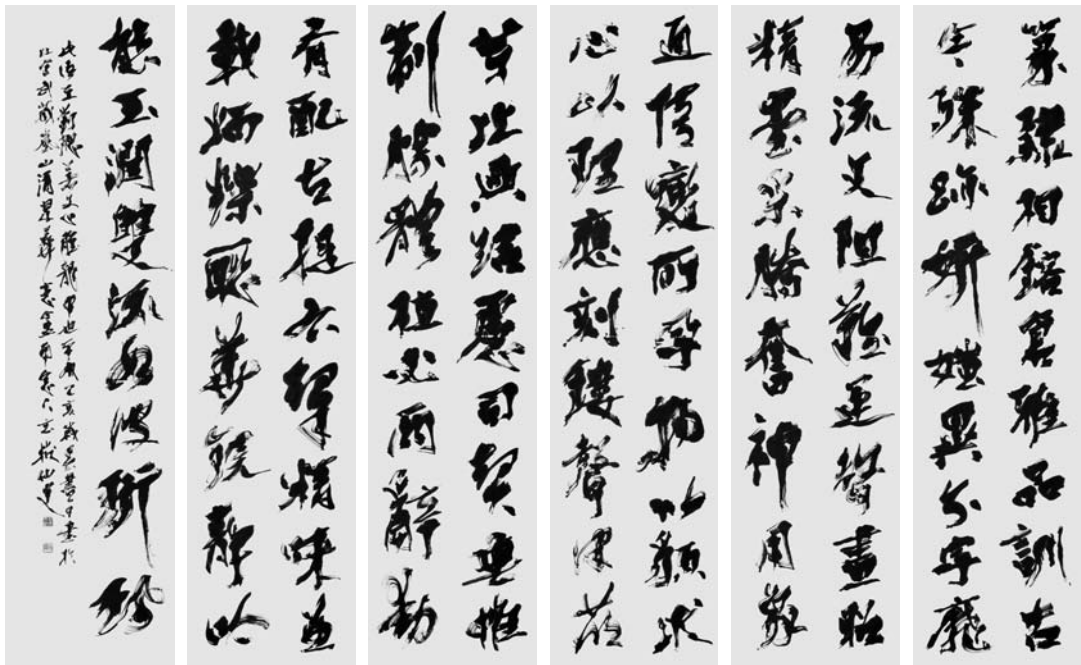 篆隸相鎔蒼雅品訓古
今殊跡妍媸異分字靡
易流文阻難運聲畫昭
精墨采騰奮神用象
通情變所孕物以貌求
心以理應刻鏤聲律萌
芽比興結慮司契垂帷
制勝體植必兩辭動
有配左提右挈精味兼
載炳爍聯華鏡靜含
態玉潤雙流如彼珩珮